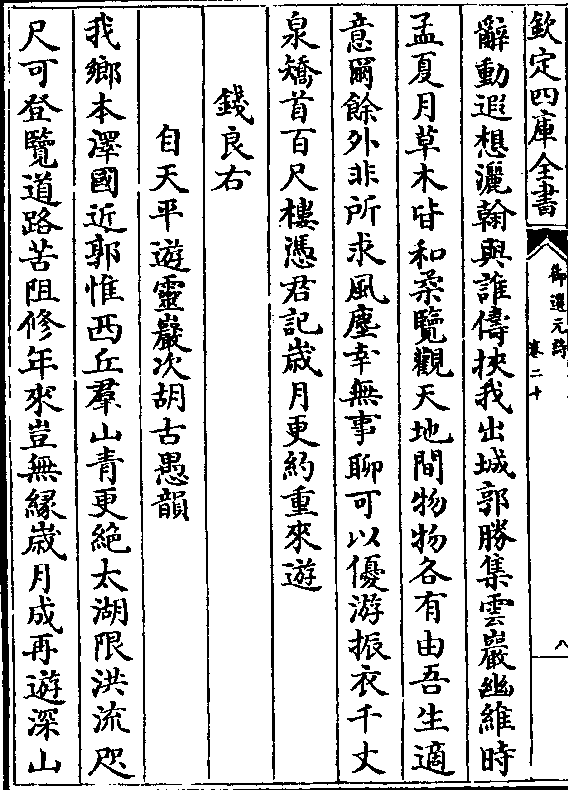 欽定四庫全書
御選元詩
卷二十
八
辭動遐想灑翰與誰儔挾我出城郭勝集雲巖幽維時
孟夏月草木皆和柔覽觀天地間物物各有由吾生適
意爾餘外非所求風塵幸無事聊可以優游振衣千丈
泉矯首百尺樓憑君記歲月更約重來遊
錢良右
自天平遊靈巖次胡古愚韻
我鄉本澤國近郭惟西丘羣山青更絶太湖限洪流咫
尺可登覽道路苦阻修年來豈無緣歲月成再遊深山